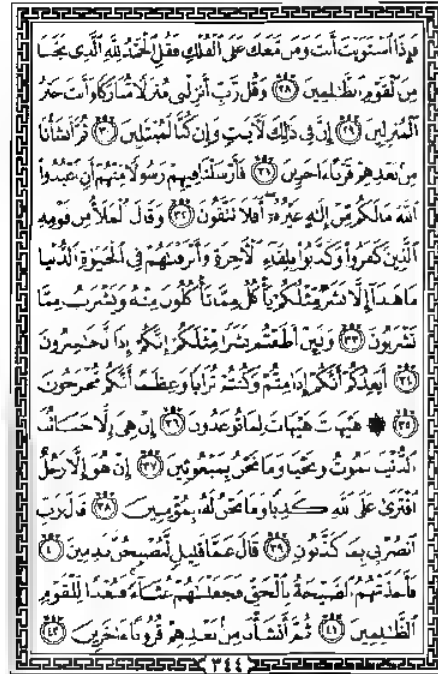 فإذا استويت أنت ومن معك على الفلك فقل الحمد لله الذي نجانا
من القوم الظالمين ٢٨ وقل رب أنزلني منزلا مباركا وأنت خير
المنزلين ٢٩ إن في ذلك لآيات وإن كنا لمبتلين ٣٠ ثم أنشأنا
من بعدهم قرنا ءاخرين ٣١ فأرسلنا فيهم رسولا منهم أن اعبدوا
الله ما لكم من إله غيره أفلا تتقون ٣٢ وقال الملأ من قومه
الذين كفروا وكذبوا بلقاء الآخرة وأترفناهم في الحيوة الدنيا
ما هذا إلا بشر مثلكم يأكل مما تأكلون منه ويشرب مما
تشربون ٣٣ ولئن أطعتم بشرا مثلكم إنكم إذا لخاسرون
٣٤ أيعدكم أنكم إذا متم وكنتم ترابا وعظاما أنكم مخرجون
٣٥ ۞ هيهات هيهات لما توعدون ٣٦ إن هي إلا حياتنا
الدنيا نموت ونحيا وما نحن بمبعوثين ٣٧ إن هو إلا رجل
افترى على الله كذبا وما نحن له بمؤمنين ٣٨ قال رب
انصرني بما كذبون ٣٩ قال عما قليل ليصبحن نادمين ٤٠
فأخذتهم الصيحة بالحق فجعلناهم غثاء فبعدا للقوم
الظالمين ٤١ ثم أنشأنا من بعدهم قرونا ءاخرين ٤٢
٣٤٤